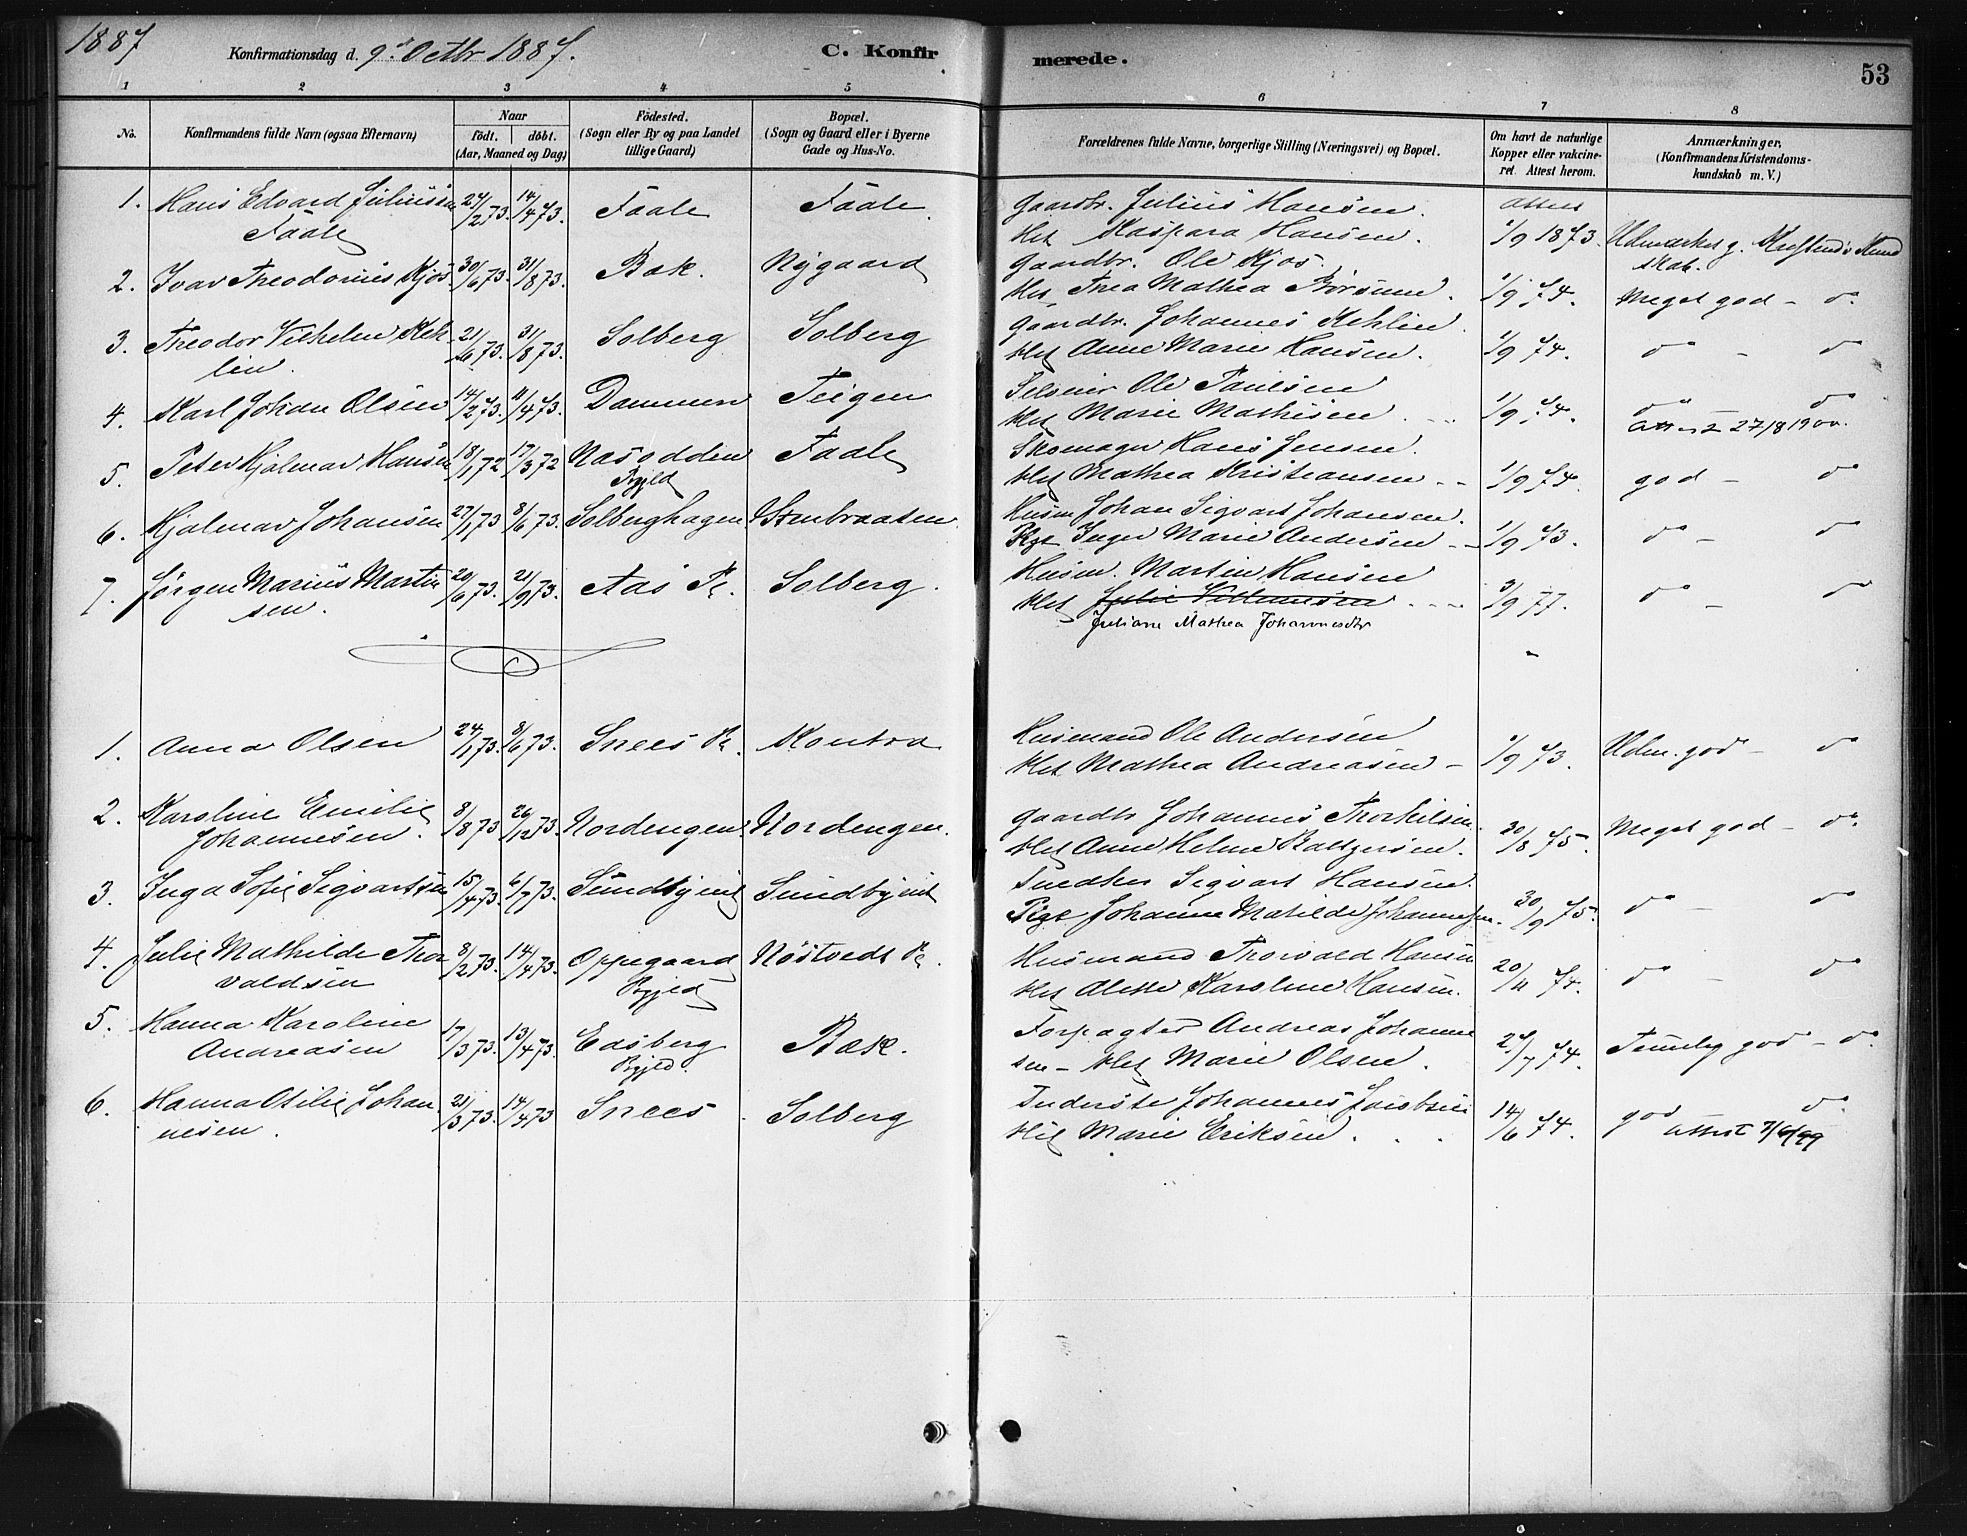 1887
Konfirmationsdag d. 9de Octbr 1887.
C. Konfirmerede.
53
1 2 3 4 5 6 7 8
No.
Konfirmandens fulde Navn (ogsaa Efternavn)
Naar
födt. döbt.
(Aar, Maaned og Dag)
Födested.
(Sogn eller By og paa Landet
tillige Gaard)
Bopæl.
(Sogn og Gaard eller i Byerne
Gade og Hus-No.
Forældrenes fulde Navne, borgerlige Stilling (Næringsvei) og Bopæl.
Om havt de naturlige
Kopper eller vakcine-
ret. Attest herom.
Anmærkninger.
(Konfirmandens Kristendoms-
kundskab m. V.)
1. Hans Edvard Juliussen 24/2 73. 14/4 73. Faale Faale. Gaardbr. Julius Hansen. attest
Faale Het Kaspara Hansen. 1/9 1873. Udmærket g. Kristends Kund
skab.
2. Ivar Theodorius Kjos 30/6 73. 31/8 73. Bæk. Nygaard Gaardbr. Ole Kjos.
Het Thea Mathea Börsum. 1/9 74. Meget god - do.
3. Theodor Vilhelm Keh 21/6 73. 31/8 73. Solberg Solberg Gaardbr. Johannes Kehlin.
lin. Het Anne Marie Hansen. 1/9 74. do - do
4. Karl Johan Olsen 14/2 73. 11/4 73. Dammen Teigen Selveier Ole Paulsen
Het Marie Mathisen. 1/9 74. do - do
27/8 1900.
5. Peter Hjalmar Hansen 18/1 72 17/3 72 Nasodden Faale Skomager Hans Jensen.
Bygld Het Mathea Kristiansen - 1/9 74. god - do
6. Hjalmar Johansen 27/1 73 8/6 73. Solberghagen Stenbraaten. Husm Johan Sigvart Johansen.
Pige Inger Marie Andersen - 1/9 73. do - do
7. Jørgen Marius Martin 20/6 73. 21/9 73. Aas Pr. Solberg. Husm. Martin Hansen
sen. Het Julie Villumsen 3/9 77. do - do
Juliane Mathea Johannesdtr
1. Anna Olsen 24/1 73. 8/6 73. Snees Pl. Kontra Husmand Ole Andersen
Het Mathea Andreasen - 1/9 73. Udm. god - do
2. Karoline Emilie 8/8 73 26/12 73. Nordengen Nordengen. Gaardbr Johannes Thorkilsen.
Johannesen. Het Anne Helene Baltzersen. 30/8 75. Meget god - do.
3. Inga Sofie Sigvartsen 15/4 73. 6/7 73. Sundbyeiet Sundbyeiet Snedker Sigvart Hansen.
Pige Johanne Matilde Johannesen. 30/9 75. do - do
4. Julie Mathilde Thor 8/2 73. 14/4 73. Oppegaard Nöstvedt Pl. Husmand Thorvald Hansen
valdsen Bygld Het Alette Karoline Hansen. 20/11 74. do - do
5. Hanna Karoline 17/3 73. 13/4 73. Edsberg Bæk. Forpagter Andreas Johanne
Andreasen Bygld. sen - Het Marie Olsen. 27/7 74. Temelig god - do.
6. Hanna Otilie Johan 21/3 73. 14/4 73 Snees. Solberg Inderste Johannes Jacobsen
nesen. Het Marie Eriksen. 14/6 74. god do.
attest 7/6/99